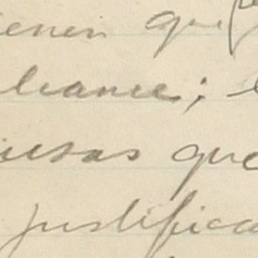 ienen que
liance;
iesas que
justifica